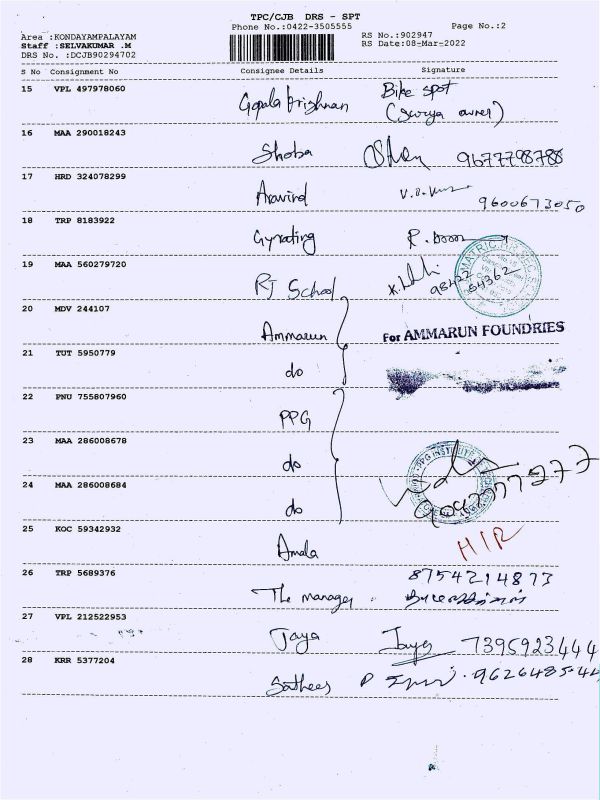 TPC/CJB DRS - SPT
Phone No.:0422-3505555
Page No.:2
Area :KONDAYAMPALAYAM
Staff :SELVAKUMAR .M
DRS No. :DCJB90294702
RS No.:902947
RS Date:08-Mar-2022
S No Consignment No Consignee Details Signature
15 VPL 497978060
Gopala krishnan Bike spot
(Surya owner)
16 MAA 290018243
Shoba 9677798788
17 HRD 324078299
Aravind 9600673050
18 TRP 8183922
Gyrating
19 MAA 560279720
RJ School 98422 54362
20 MDV 244107
Ammarun For AMMARUN FOUNDRIES
21 TUT 5950779
do
22 PNU 755807960
PPG
23 MAA 286008678
do PPG INSTITUTE
24 MAA 286008684
do
25 KOC 59342932
Amala
26 TRP 5689376
The manager 8754214873
27 VPL 212522953
Jaya Jaya 7395923444
28 KRR 5377204
Sathees